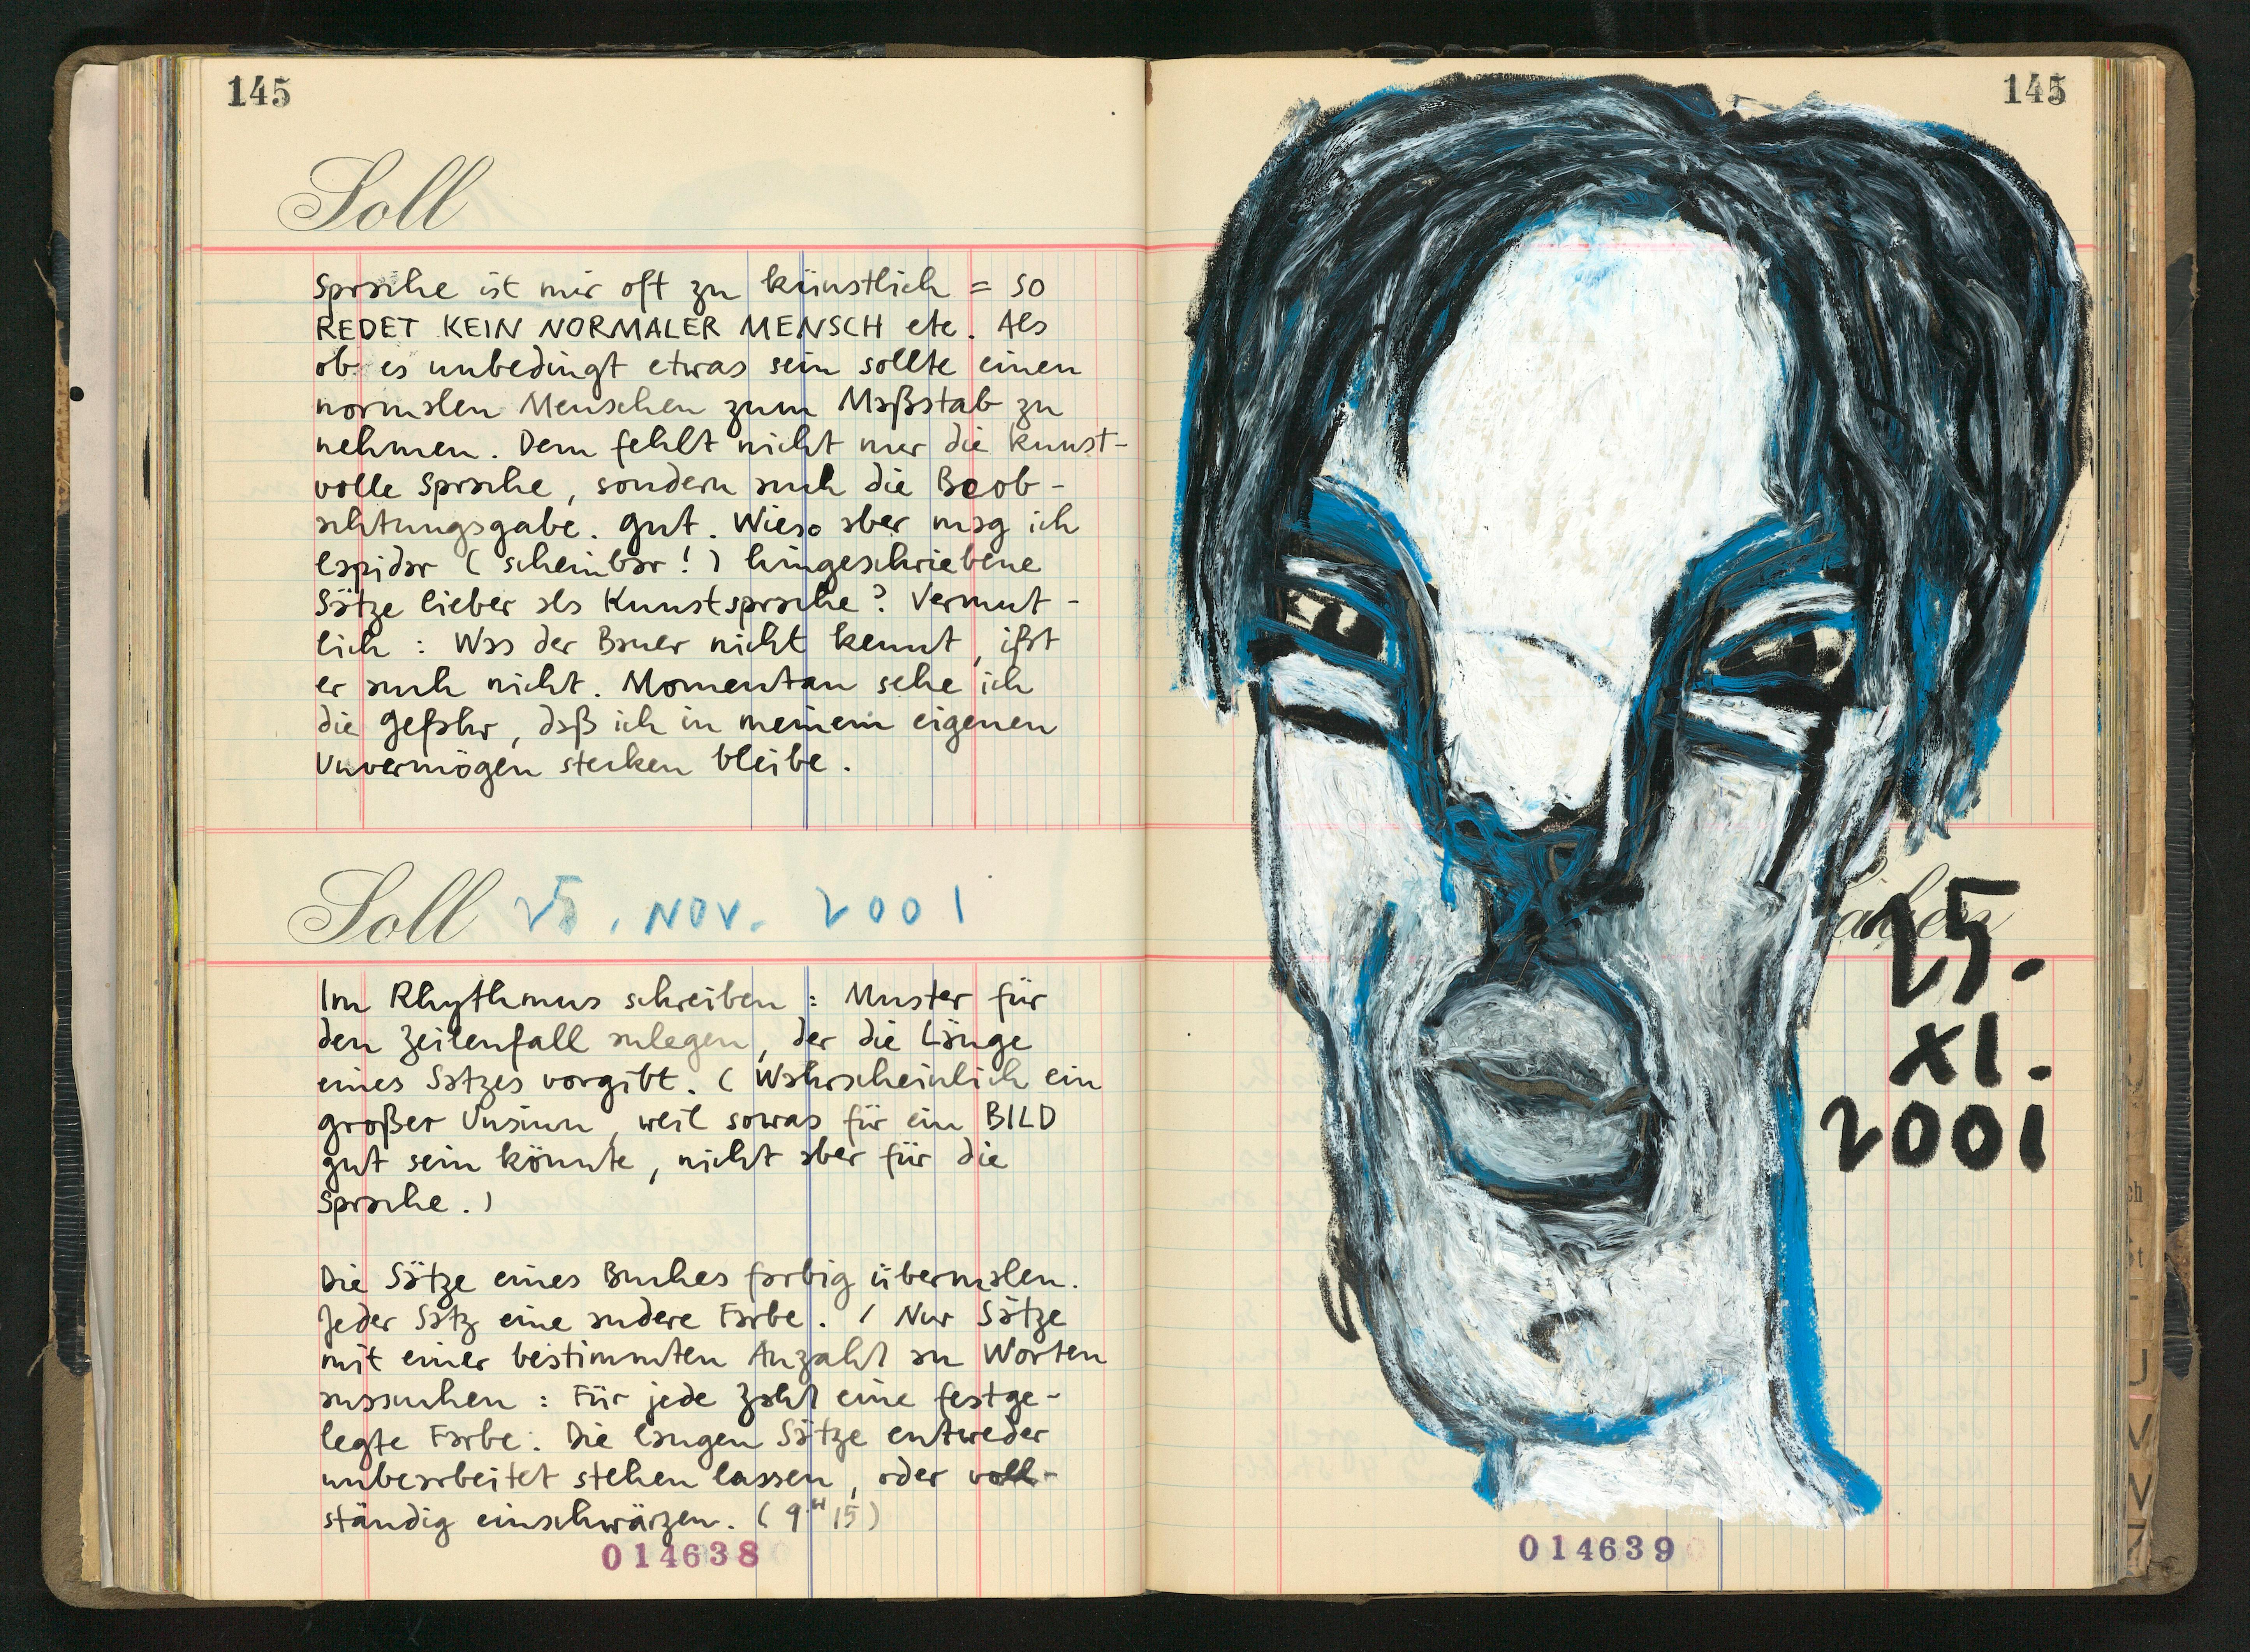 145
Soll
Sprache ist mir oft zu künstlich = SO
REDET KEIN NORMALER MENSCH etc. Als
ob es unbedingt etwas sein sollte einen
normalen Menschen zum Maßstab zu
nehmen. Dem fehlt nicht nur die kunst-
volle Sprache, sondern auch die Beob-
achtungsgabe. Gut. Wieso aber mag ich
lapidar (scheinbar!) hingeschriebene
Sätze lieber als Kunstsprache? Vermut-
lich: Was der Bauer nicht kennt, ißt
er auch nicht. Momentan sehe ich
die Gefahr, daß ich in meinem eigenen
Unvermögen stecken bleibe.
Soll 25. NOV. 2001
Im Rhythmus schreiben: Muster für
den Zeilenfall anlegen, der die Länge
eines Satzes vorgibt. (Wahrscheinlich ein
großer Unsinn, weil sowas für ein BILD
gut sein könnte, nicht aber für die
Sprache.)
Die Sätze eines Buches farbig übermalen.
Jeder Satz eine andere Farbe. / Nur Sätze
mit einer bestimmten Anzahl an Worten
aussuchen: Für jede Zahl eine festge-
legte Farbe. Die langen Sätze entweder
unbearbeitet stehen lassen, oder voll-
ständig einschwärzen. (9H15)
014638
145
25.
XI.
2001
014639
U
V
W
Z